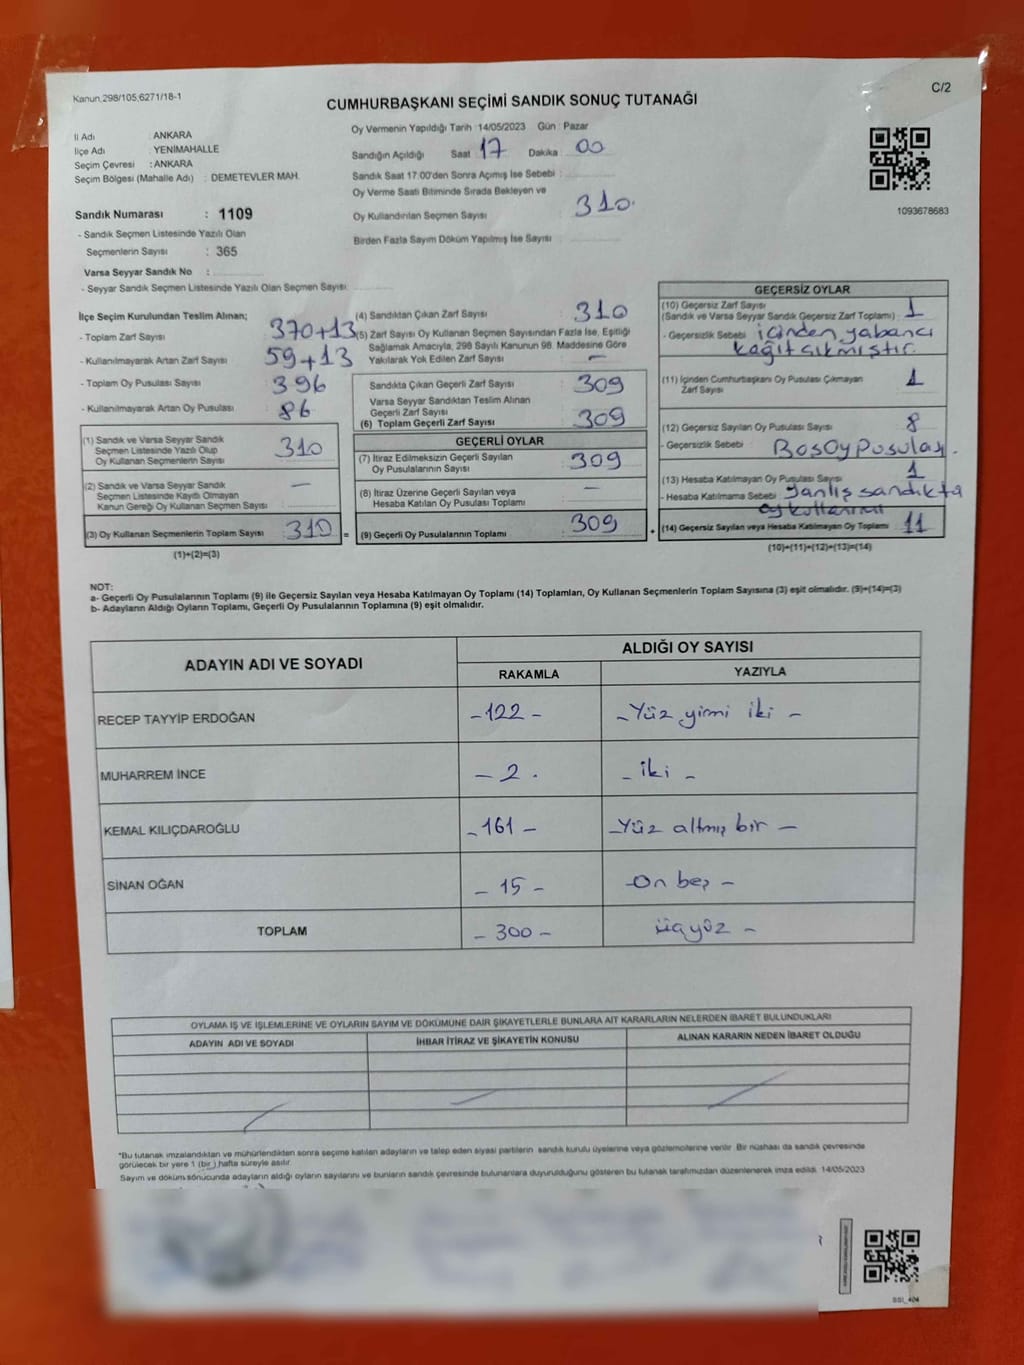 Kanun.298/105,6271/18-1
C/2
CUMHURBAŞKANI SEÇİMİ SANDIK SONUÇ TUTANAĞI
İl Adı : ANKARA
İlçe Adı : YENİMAHALLE
Seçim Çevresi : ANKARA
Seçim Bölgesi (Mahalle Adı) : DEMETEVLER MAH.
Sandık Numarası : 1109
- Sandık Seçmen Listesinde Yazılı Olan
Seçmenlerin Sayısı : 365
Varsa Seyyar Sandık No :
- Seyyar Sandık Seçmen Listesinde Yazılı Olan Seçmen Sayısı:
Oy Vermenin Yapıldığı Tarih :14/05/2023 Gün : Pazar
Sandığın Açıldığı Saat 17 Dakika 00
Sandık Saat 17:00'den Sonra Açımış İse Sebebi :
Oy Verme Saati Bitiminde Sırada Bekleyen ve
Oy Kullandırılan Seçmen Sayısı : 310.
Birden Fazla Sayım Döküm Yapılmış İse Sayısı :
1093678683
İlçe Seçim Kurulundan Teslim Alınan;
- Toplam Zarf Sayısı : 370+13
- Kullanılmayarak Artan Zarf Sayısı : 59+13
- Toplam Oy Pusulası Sayısı : 396
- Kullanılmayarak Artan Oy Pusulası : 86
(1) Sandık ve Varsa Seyyar Sandık
Seçmen Listesinde Yazılı Olup
Oy Kullanan Seçmenlerin Sayısı : 310
(2) Sandık ve Varsa Seyyar Sandık
Seçmen Listesinde Kayıtlı Olmayan
Kanun Gereği Oy Kullanan Seçmen Sayısı : —
(3) Oy Kullanan Seçmenlerin Toplam Sayısı : 310 =
(1)+(2)=(3)
(4) Sandıktan Çıkan Zarf Sayısı : 310
(5) Zarf Sayısı Oy Kullanan Seçmen Sayısından Fazla İse, Eşitliği
Sağlamak Amacıyla, 298 Sayılı Kanunun 98. Maddesine Göre
Yakılarak Yok Edilen Zarf Sayısı : —
Sandıkta Çıkan Geçerli Zarf Sayısı : 309
Varsa Seyyar Sandıktan Teslim Alınan
Geçerli Zarf Sayısı :
(6) Toplam Geçerli Zarf Sayısı : 309
GEÇERLİ OYLAR
(7) İtiraz Edilmeksizin Geçerli Sayılan
Oy Pusulalarının Sayısı : 309
(8) İtiraz Üzerine Geçerli Sayılan veya
Hesaba Katılan Oy Pusulası Toplamı : —
(9) Geçerli Oy Pusulalarının Toplamı : 309 +
GEÇERSİZ OYLAR
(10) Geçersiz Zarf Sayısı
(Sandık ve Varsa Seyyar Sandık Geçersiz Zarf Toplamı) : 1
- Geçersizlik Sebebi : içinden yabancı
kağıt çıkmıştır.
(11) İçinden Cumhurbaşkanı Oy Pusulası Çıkmayan
Zarf Sayısı : 1
(12) Geçersiz Sayılan Oy Pusulası Sayısı : 8
- Geçersizlik Sebebi : Boş Oy Pusulası.
(13) Hesaba Katılmayan Oy Pusulası Sayısı : 1
- Hesaba Katılmama Sebebi : yanlış sandıkta
oy kullanımı
(14) Geçersiz Sayılan veya Hesaba Katılmayan Oy Toplamı : 11
(10)+(11)+(12)+(13)=(14)
NOT:
a- Geçerli Oy Pusulalarının Toplamı (9) ile Geçersiz Sayılan veya Hesaba Katılmayan Oy Toplamı (14) Toplamları, Oy Kullanan Seçmenlerin Toplam Sayısına (3) eşit olmalıdır. (9)+(14)=(3)
b- Adayların Aldığı Oyların Toplamı, Geçerli Oy Pusulalarının Toplamına (9) eşit olmalıdır.
ADAYIN ADI VE SOYADI
ALDIĞI OY SAYISI
RAKAMLA YAZIYLA
RECEP TAYYİP ERDOĞAN -122- -Yüz yirmi iki-
MUHARREM İNCE -2. -iki-
KEMAL KILIÇDAROĞLU -161- -Yüz altmış bir-
SİNAN OĞAN -15- -On beş-
TOPLAM -300- üçyüz-
OYLAMA İŞ VE İŞLEMLERİNE VE OYLARIN SAYIM VE DÖKÜMÜNE DAİR ŞİKAYETLERLE BUNLARA AİT KARARLARIN NELERDEN İBARET BULUNDUKLARI
ADAYIN ADI VE SOYADI İHBAR İTİRAZ VE ŞİKAYETİN KONUSU ALINAN KARARIN NEDEN İBARET OLDUĞU
*Bu tutanak imzalandıktan ve mühürlendikten sonra seçime katılan adayların ve talep eden siyasi partilerin sandık kurulu üyelerine veya gözlemcilerine verilir. Bir nüshası da sandık çevresinde
görülecek bir yere 1 (bir) hafta süreyle asılır.
Sayım ve döküm sonucunda adayların aldığı oyların sayılarını ve bunların sandık çevresinde bulunanlara duyurulduğunu gösteren bu tutanak tarafımızdan düzenlenerek imza edildi. 14/05/2023
SSI_404